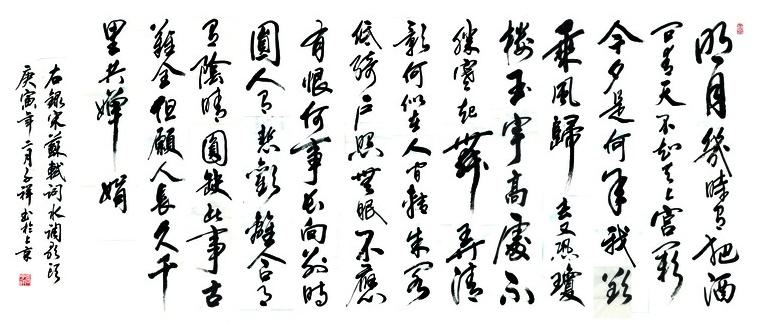 明月幾時有把酒
问青天不知天上宫阙
今夕是何年我欲
乘風歸去又恐瓊
楼玉宇高處不
勝寒起舞弄清
影何似在人间转朱阁
低绮户照無眠不應
有恨何事长向别時
圓人有悲歡離合月
有陰晴圓缺此事古
難全但願人長久千
里共嬋娟
右錄宋蘇軾词水调歌头
庚寅年月祥书於